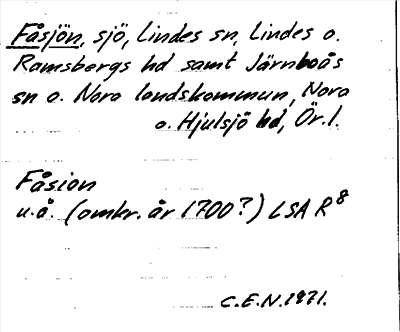 Fåsjön, sjö, Lindes sn, Lindes o.
Ramsbergs hd samt Järnboås
sn o. Nora landskommun, Nora
o. Hjulsjö hd, Ör.l.
Fåsion
u.å. (omkr. år 1700?) LSA R8
C.E.N.1971.